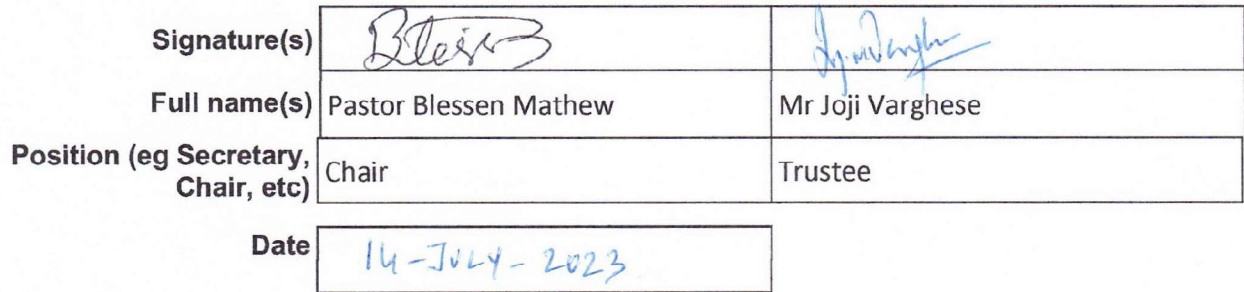 Signature(s)
Full name(s) Pastor Blessen Mathew Mr Joji Varghese
Position (eg Secretary,
Chair, etc) Chair Trustee
Date 14-JULY-2023